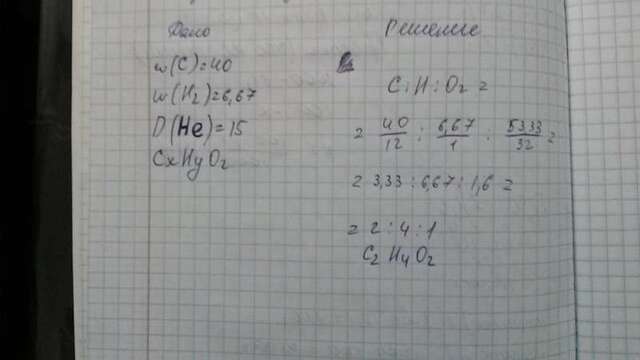 Дано
w(C)=40
w(H₂)=6,67
D(He)=15
CxHyO₂
Решение
C:H:O₂ =
= 40/12 : 6,67/1 : 53,33/32 =
= 3,33 : 6,67 : 1,6 =
= 2 : 4 : 1
C₂H₄O₂